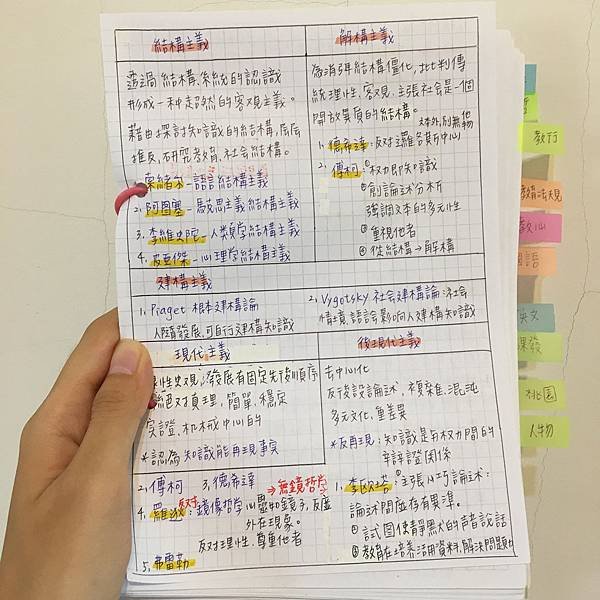 結構主義
透過結構、系統的認識
形成一種超然的客觀主義。
藉由探討知識的結構,層層
推反,研究教育、社會結構。
1. 索緒爾-語言結構主義
2. 阿圖塞-馬克思主義結構主義
3. 李維史陀-人類學結構主義
4. 皮亞傑-心理學結構主義
解構主義
為消弭結構僵化,批判傳
統理性、客觀,主張社會是一個
開放異質的結構。
文本外,別無他物
1. 德希達:反對邏各斯中心
2. 傅柯:權力即知識
創論述分析
強調文本的多元性
重視他者
從結構→解構
建構主義
1. Piaget 根本建構論
人類發展,可自行建構知識
2. Vygotsky 社會建構論:社會
情境、語言會影響人建構知識
現代主義
線性史觀:發展有固定先後順序
絕對真理,簡單、穩定
實證、機械中心的
*認為知識能再現事實
後現代主義
去中心化
反後設論述,複雜、混沌
多元文化,重差異
*反再現:知識是與權力間的
辯證關係
2. 傅柯 3. 德希達
4. 羅狄 反對:鏡像哲學 ⇒無鏡哲學
心靈如鏡子,反應
外在現象。
反對理性,尊重他者
5. 弗雷勒
1. 李歐塔:主張小巧論述:
論述間並存有異準。
試圖使靜默的聲音說話
教育在培養活用資料,解決問題力
教行
教心
國語
英文
課發
桃園
人物